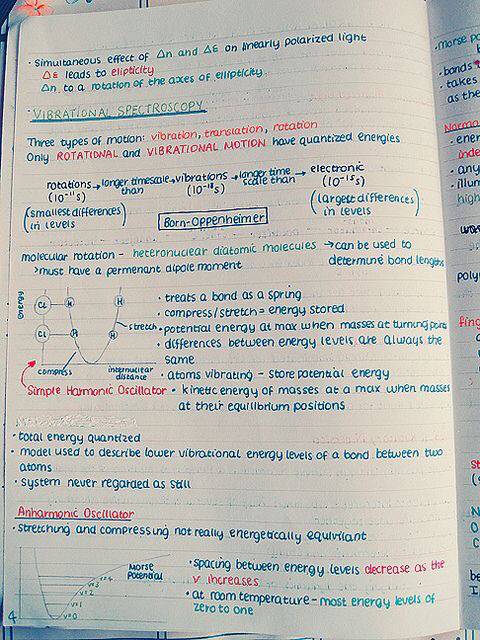 · Simultaneous effect of Δn and Δε on linearly polarized light
Δε leads to elipticity
Δn to a rotation of the axes of ellipticity.
VIBRATIONAL SPECTROSCOPY
Three types of motion: vibration, translation, rotation
Only ROTATIONAL and VIBRATIONAL MOTION have quantized energies
rotations → longer timescale than → vibrations → longer time scale than → electronic
(smallest differences in levels)
Born-Oppenheimer
(largest differences in levels)
molecular rotation - heteronuclear diatomic molecules → can be used to
> must have a permenant dipole moment
determine bond lengths
Energy
Cl
H
H
Cl
H
H
stretch
compress
internuclear distance
Simple Harmonic Oscillator
· treats a bond as a spring
· compress/stretch = energy stored
· potential energy at max when masses at turning points
· differences between energy levels are always the
same
· atoms vibrating - store potential energy
· kinetic energy of masses at a max when masses
at their equilibrium positions
· total energy quantized
· model used to describe lower vibrational energy levels of a bond between two
atoms
· system never regarded as still
Anharmonic Oscillator
· stretching and compressing not really energetically equivilant
Morse
Potential
v=4
v=3
v=2
v=1
v=0
· spacing between energy levels decrease as the
v increases
· at room temperature - most energy levels of
zero to one
4
· morse po
· bonds
· takes
as the
Norma
· ener
inde
· any
· illum
high